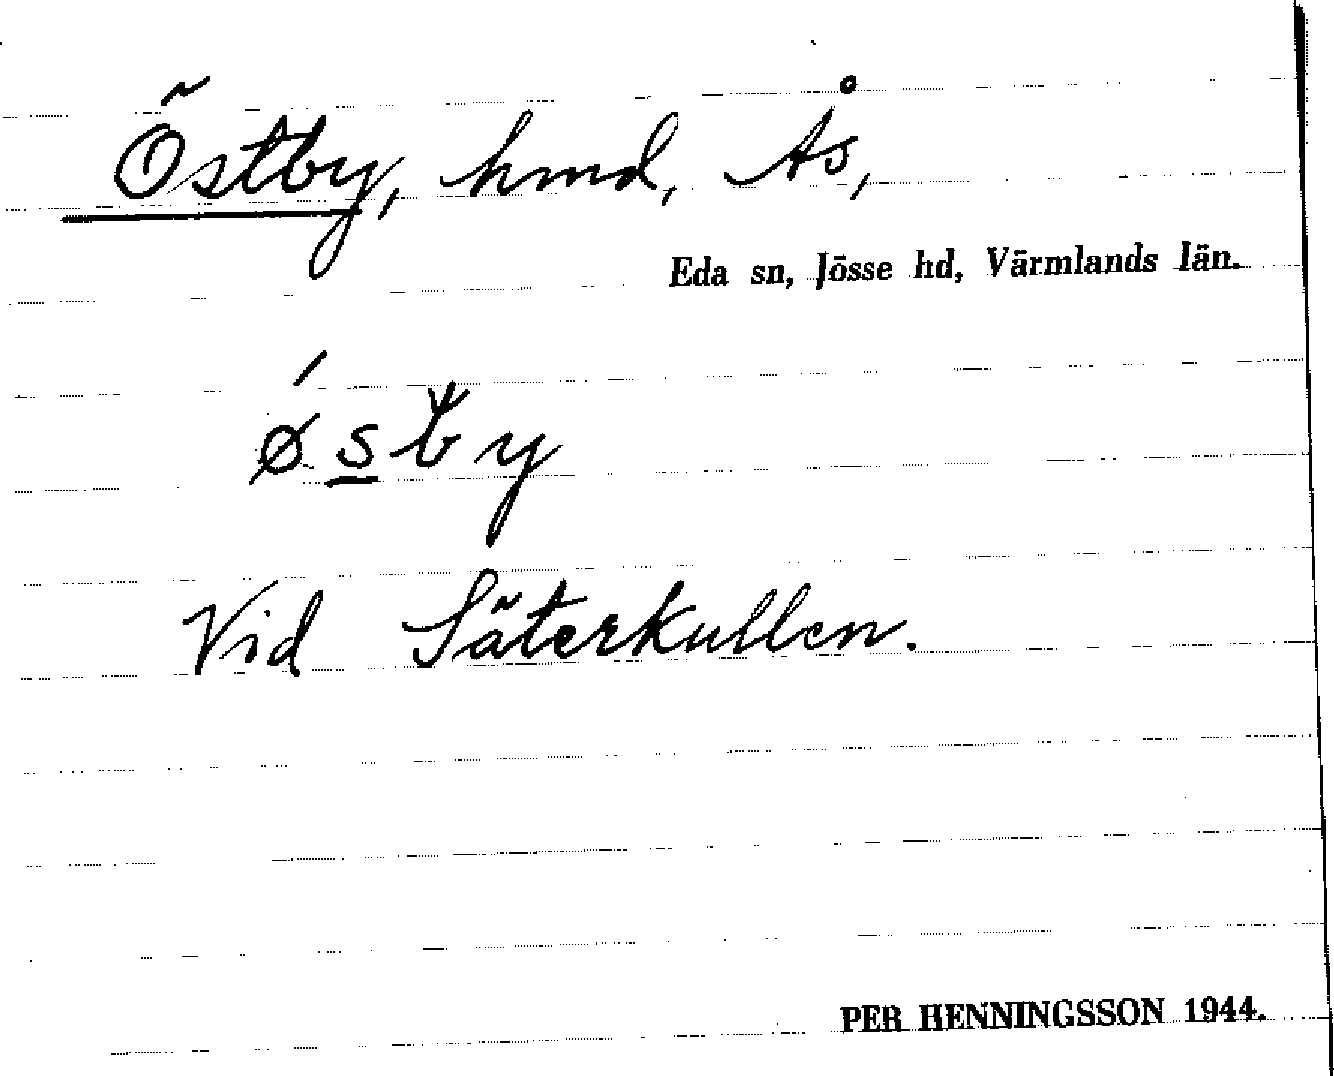 Östby, hmd, Ås,
Eda sn, Jösse hd, Värmlands län.
ǿsby
Vid Säterkullen.
PER HENNINGSSON 1944.